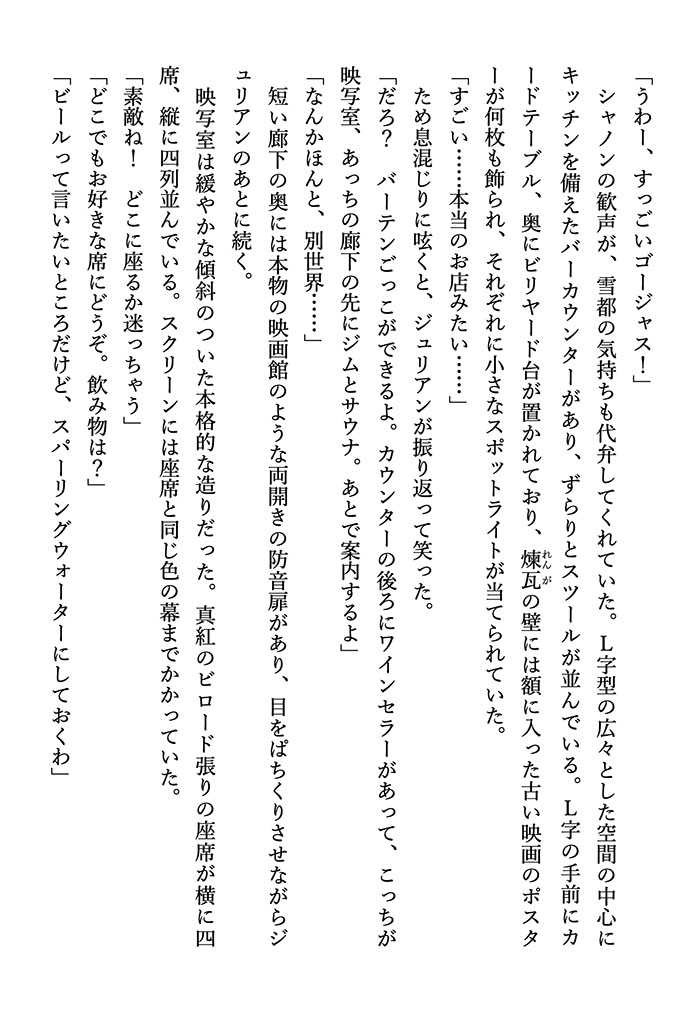 「うわー、すっごいゴージャス！」
　シャノンの歓声が、雪都の気持ちも代弁してくれていた。Ｌ字型の広々とした空間の中心に
キッチンを備えたバーカウンターがあり、ずらりとスツールが並んでいる。Ｌ字の手前にカ
ードテーブル、奥にビリヤード台が置かれており、煉瓦の壁には額に入った古い映画のポスタ
ーが何枚も飾られ、それぞれに小さなスポットライトが当てられていた。
「すごい……本当のお店みたい……」
　ため息混じりに呟くと、ジュリアンが振り返って笑った。
「だろ？　バーテンごっこができるよ。カウンターの後ろにワインセラーがあって、こっちが
映写室、あっちの廊下の先にジムとサウナ。あとで案内するよ」
「なんかほんと、別世界……」
　短い廊下の奥には本物の映画館のような両開きの防音扉があり、目をぱちくりさせながらジ
ュリアンのあとに続く。
　映写室は緩やかな傾斜のついた本格的な造りだった。真紅のビロード張りの座席が横に四
席、縦に四列並んでいる。スクリーンには座席と同じ色の幕までかかっていた。
「素敵ね！　どこに座るか迷っちゃう」
「どこでもお好きな席にどうぞ。飲み物は？」
「ビールって言いたいところだけど、スパーリングウォーターにしておくわ」
れんが